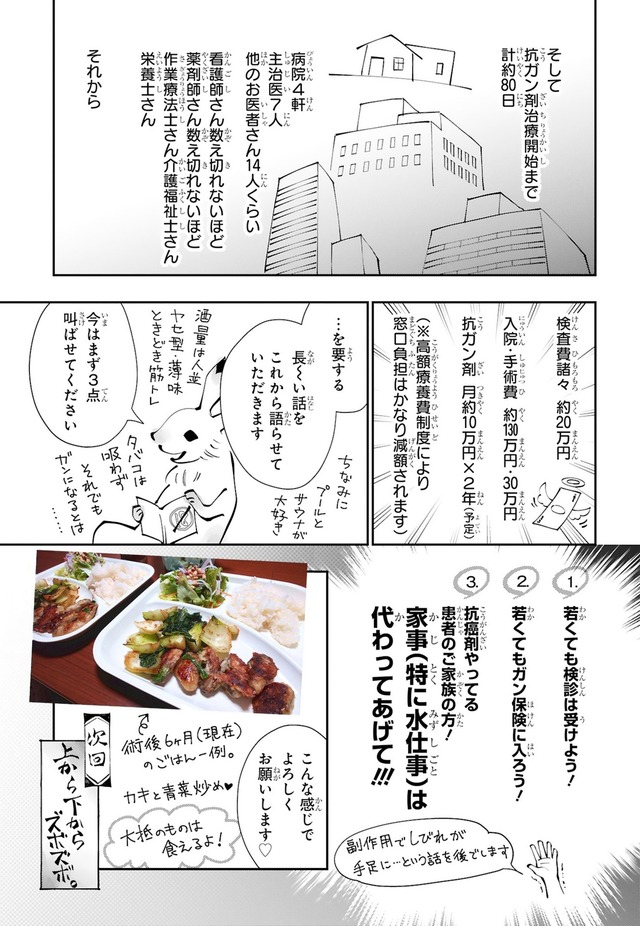 そして
抗ガン剤治療開始まで
計約80日
病院4軒
主治医7人
他のお医者さん14人くらい
看護師さん数え切れないほど
薬剤師さん数え切れないほど
作業療法士さん介護福祉士さん
栄養士さん
それから
検査費諸々 約20万円
入院・手術費 約130万円・30万円
抗ガン剤 月約10万円×2年(予定)
(※高額療養費制度により
窓口負担はかなり減額されます)
…を要する
長〜い話を
これから語らせて
いただきます
ちなみに
プールと
サウナが
大好き
酒量は人並
ヤセ型・薄味
ときどき筋トレ
今はまず3点
叫ばせてください
タバコは
吸わず
それでも
ガンになるとは……
1. 若くても検診は受けよう!
2. 若くてもガン保険に入ろう!
3. 抗癌剤やってる
患者のご家族の方!
家事(特に水仕事)は
代わってあげて!!!
副作用でしびれが
手足に…という話を後でします
こんな感じで
よろしく
お願いします♡
術後6ヶ月(現在)
のごはん一例。
カキと青菜炒め♥
大抵のものは
食えるよ!
次回
上から下から
ズボズボ。